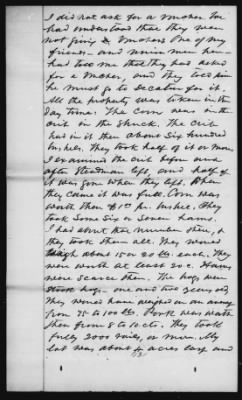 I did not ask for a voucher. We
had understood that they were
not giving vouchers. One of my
friends - and union men here -
had told me that they had asked
for a voucher, and they told him
he must go to Decatur for it.
All the property was taken in the
day time. The corn was in the
crib in the shuck. The crib
had in it then about six hundred
bushels. They took half of it or more.
I examined the crib before and
after Steadman left, and half of
it was gone when they left. When
they came it was full. Corn was
worth then $1 pr. bushel. They
took some six or seven hams.
I had about that number there, &
they took them all. They would
weigh about 15 or 20 lbs. each. They
were worth at least 20 c. Hams
were scarce then. The hogs were
stock hogs - one and two years old
They would have weighed on an average
from 75 to 100 lbs. Pork was worth
then from 8 to 10 cts. They took
fully 2000 rails, or more. My
lot was about 4 acres large and